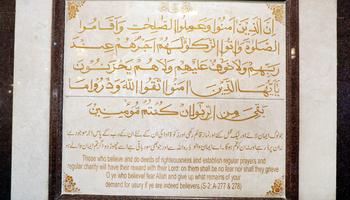 اِنَّ الَّذِيْنَ اٰمَنُوْا وَعَمِلُوا الصّٰلِحٰتِ وَاَقَامُوا
الصَّلٰوةَ وَاٰتَوُا الزَّكٰوةَ لَهُمْ اَجْرُهُمْ عِنْدَ
رَبِّهِمْ وَلَا خَوْفٌ عَلَيْهِمْ وَلَا هُمْ يَحْزَنُوْنَ
يٰٓاَيُّهَا الَّذِيْنَ اٰمَنُوا اتَّقُوا اللّٰهَ وَذَرُوْا مَا
بَقِيَ مِنَ الرِّبٰوا اِنْ كُنْتُمْ مُّؤْمِنِيْنَ
Those who believe and do deeds of righteousness and establish regular prayers and
regular charity will have their reward with their Lord: on them shall be no fear nor shall they grieve
O ye who believe! Fear Allah and give up what remains of your
demand for usury if ye are indeed believers. (S-2: A-277 & 278)